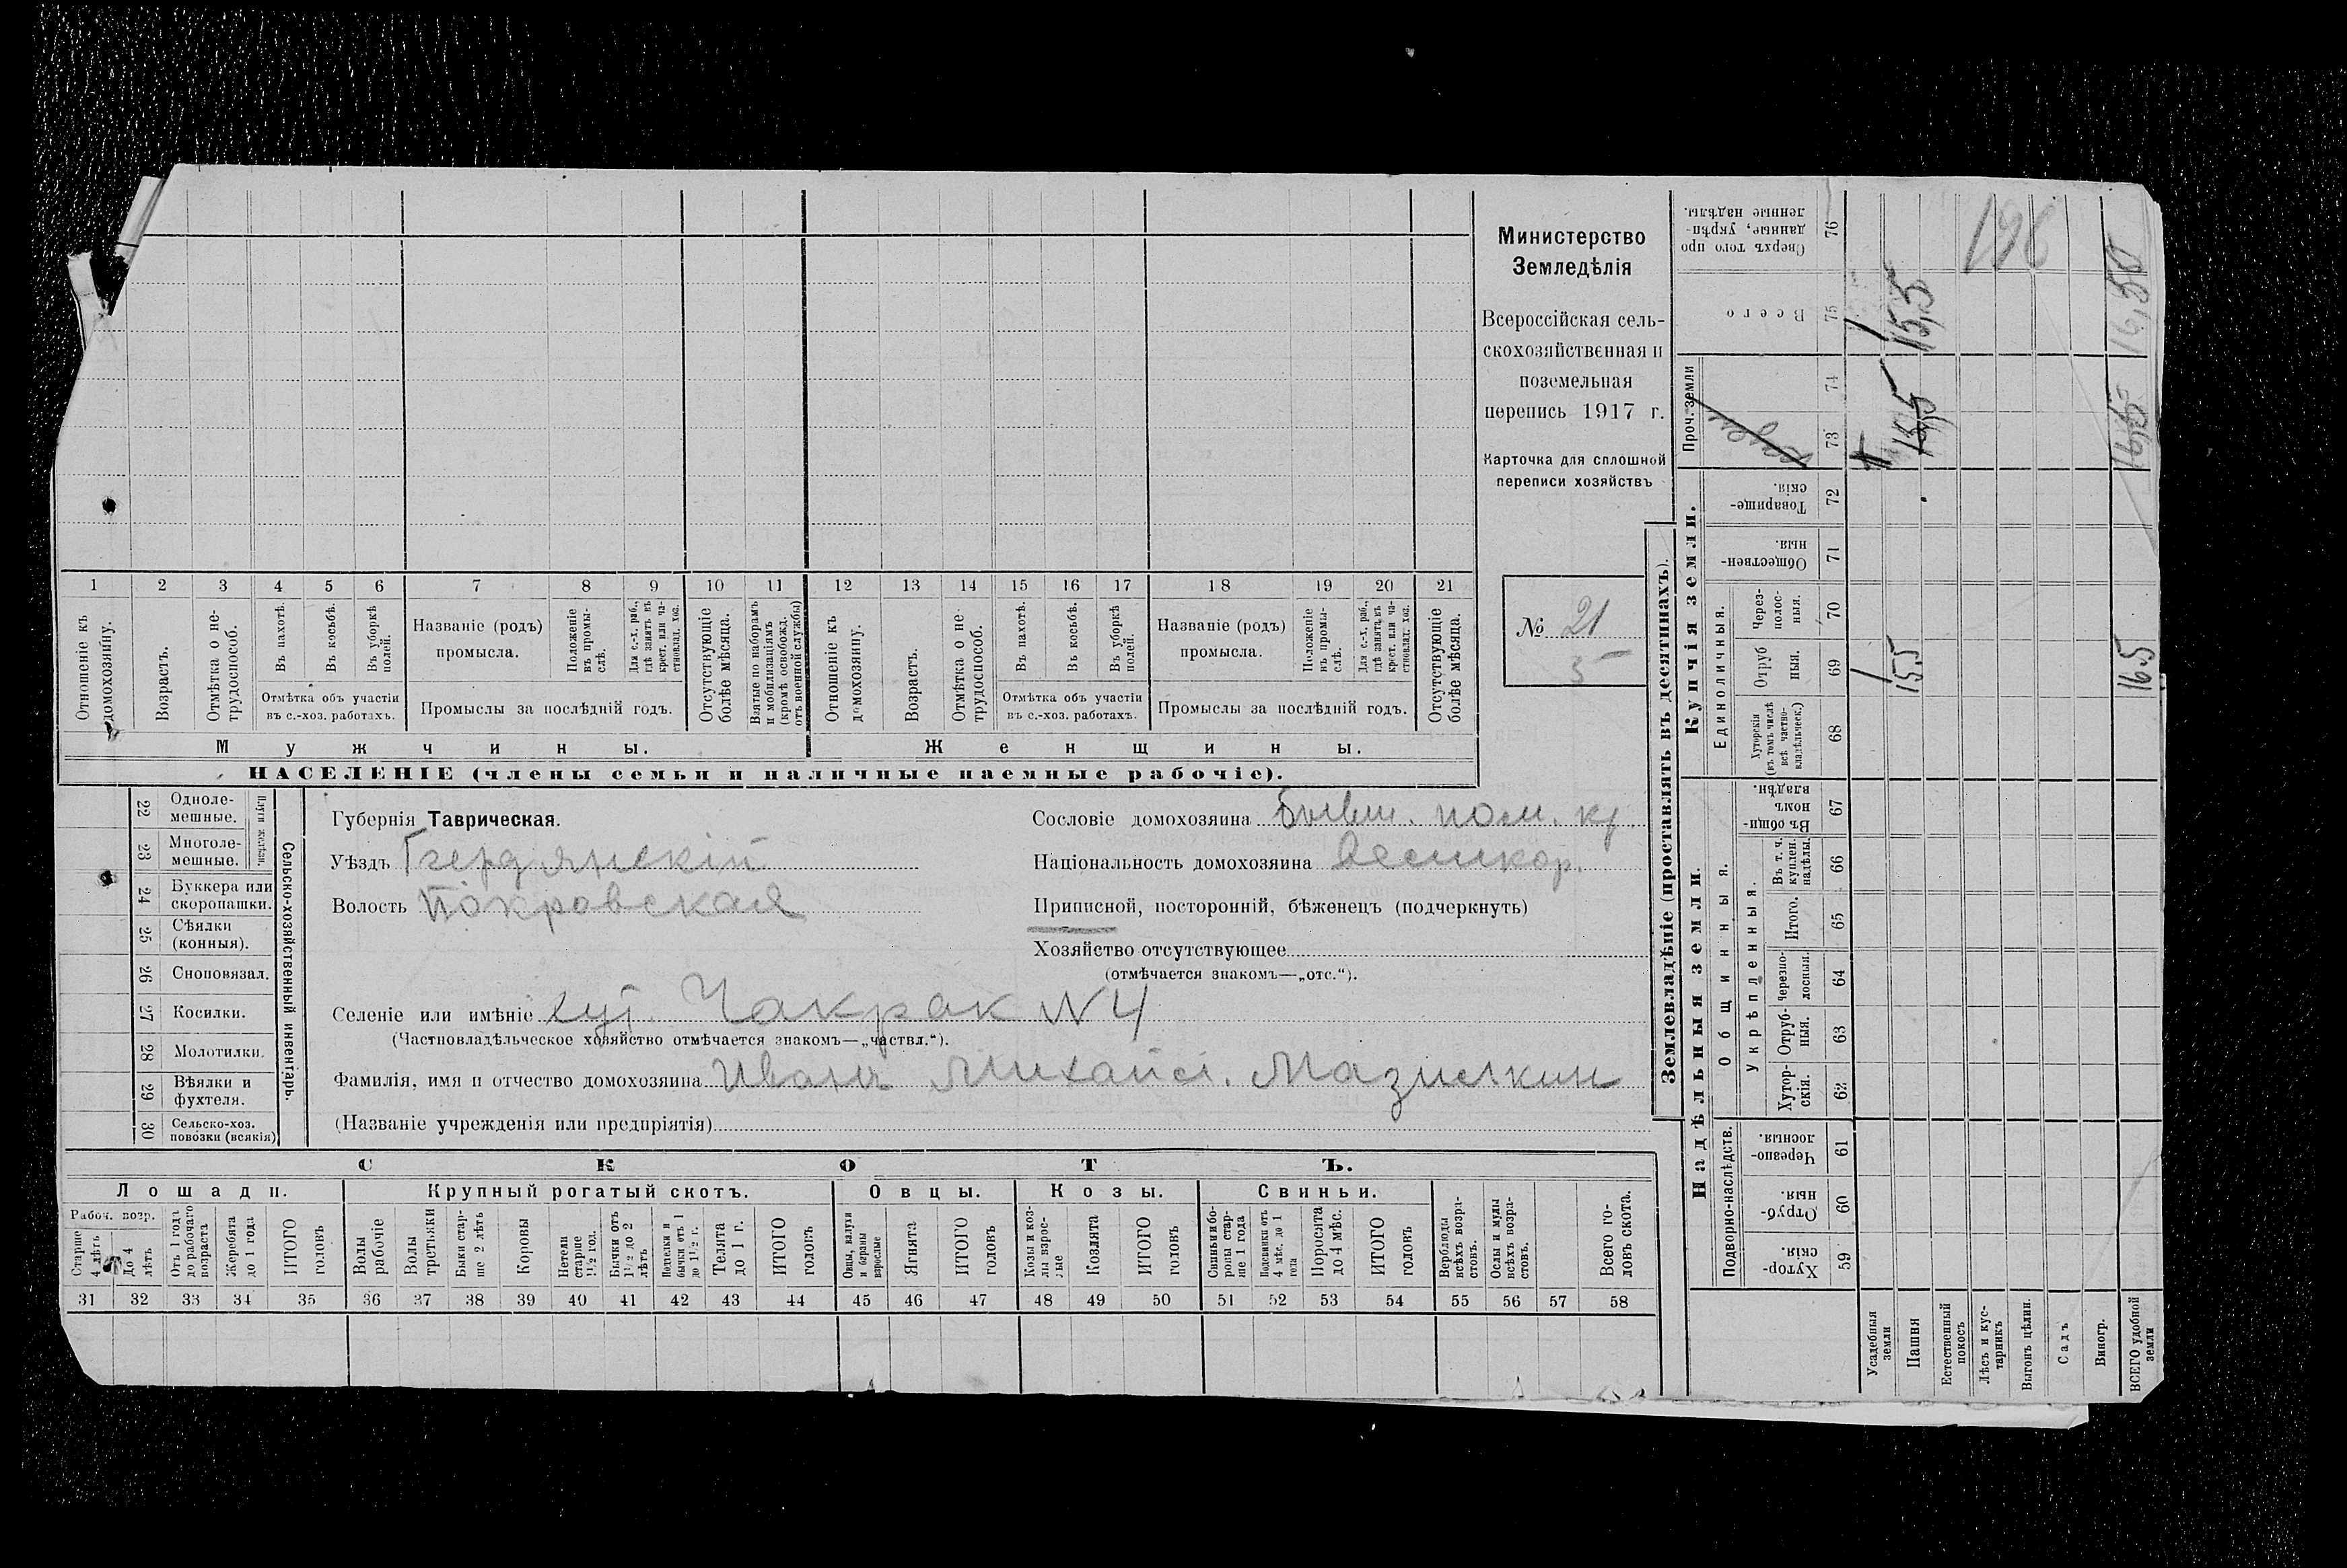 Министерство
Земледѣлія
Всероссійская сель-
скохозяйственная и
поземельная
перепись 1917 г.
Карточка для сплошной
переписи хозяйствъ
№ 21
5
1 2 3 4 5 6 7 8 9 10 11 12 13 14 15 16 17 18 19 20 21
Отношеніе къ домохозяину.
Возрастъ.
Отмѣтка о не-
трудоспособ.
Въ пахотѣ.
Въ косьбѣ.
Въ уборкѣ полей.
Отмѣтка объ участіи
въ с.-хоз. работахъ.
Названіе (родъ)
промысла.
Положеніе въ промы-
слѣ.
Для с.-х. раб., гдѣ занятъ въ крест. или ча-
стновлад. хоз.
Промыслы за послѣдній годъ.
Отсутствующіе
болѣе мѣсяца.
Взятые по наборамъ
и мобилизаціямъ
(кромѣ освобожд.
отъ военной службы)
Отношеніе къ
домохозяину.
Возрастъ.
Отмѣтка о не-
трудоспособ.
Въ пахотѣ.
Въ косьбѣ.
Въ уборкѣ полей.
Отмѣтка объ участіи
въ с.-хоз. работахъ.
Названіе (родъ)
промысла.
Положеніе въ промы-
слѣ.
Для с.-х. раб., гдѣ занятъ въ крест. или ча-
стновлад. хоз.
Промыслы за послѣдній годъ.
Отсутствующіе
болѣе мѣсяца.
Мужчины.
Женщины.
НАСЕЛЕНІЕ (члены семьи и наличные наемные рабочіе).
Сельско-хозяйственный инвентарь.
22 Одноле-
мешные.
23 Многоле-
мешные.
24 Буккера или
скоропашки.
25 Сѣялки
(конныя).
26 Сноповязал.
27 Косилки.
28 Молотилки.
29 Вѣялки и
фухтеля.
30 Сельско-хоз.
повозки (всякія)
Губернія Таврическая.
Уѣздъ Бердянскій
Волость Покровская
Сословіе домохозяина бывш. пом. кр.
Національность домохозяина великор.
Приписной, посторонній, бѣженецъ (подчеркнуть)
Хозяйство отсутствующее
(отмѣчается знакомъ—„отс.“).
Селеніе или имѣніе хут. Чакрак N 4
(Частновладѣльческое хозяйство отмѣчается знакомъ—„частвл.“).
Фамилія, имя и отчество домохозяина Иванъ Михайл. Мазилкин
(Названіе учрежденія или предпріятія)
СКОТЪ.
Лошади.
Крупный рогатый скотъ.
Овцы.
Козы.
Свиньи.
Рабоч. возр.
Старше
4 лѣтъ
До 4
лѣтъ
Отъ 1 года
до рабочаго
возраста
Жеребята
до 1 года
ИТОГО
головъ
Волы
рабочіе
Волы
третьяки
Быки стар-
ше 2 лѣтъ
Коровы
Нетели
старше
1½ год.
Бычки отъ
1½ до 2
лѣтъ
Подтелки и
бычки отъ 1
до 1½ г.
Телята
до 1 г.
ИТОГО
головъ
Овцы, валухи
и бараны
взрослые
Ягнята
ИТОГО
головъ
Козы и коз-
лы взрос-
лые
Козлята
ИТОГО
головъ
Свиньи и бо-
ровы стар-
ше 1 года
Подсвинки отъ
4 мѣс. до 1
года
Поросята
до 4 мѣс.
ИТОГО
головъ
Верблюды
всѣхъ возра-
стовъ.
Ослы и мулы
всѣхъ возра-
стовъ.
Всего го-
ловъ скота.
31 32 33 34 35 36 37 38 39 40 41 42 43 44 45 46 47 48 49 50 51 52 53 54 55 56 57 58
Землевладѣніе (проставлять въ десятинахъ).
Надѣльныя земли.
Купчія земли.
Проч. земли
Подворно-наслѣдств.
Общинныя.
Укрѣпленныя.
Единоличныя.
Хутор-
скія.
59
Отруб-
ныя.
60
Черезпо-
лосныя.
61
Хутор-
скія.
62
Отруб-
ныя.
63
Черезпо-
лосныя.
64
Итого.
65
Въ т. ч.
куплен.
надѣлы.
66
Въ общи-
номъ
владѣн.
67
Хуторскія
(въ томъ числѣ
всѣ частно-
владѣльческ.)
68
Отруб
ныя.
69
Через-
полос-
ныя.
70
Обществен-
ныя.
71
Товарище-
скія.
72
73
74
Всего
75
Сверхъ того про
данные, укрѣп-
ленные надѣлы.
76
Усадебныя
земли
1
1
Пашня
15,5
15,5
15,5
Естественный
покосъ
Лѣсъ и кус-
тарникъ
196
Выгонъ цѣлин.
Садъ
Виногр.
ВСЕГО удобной
земли
16.5
16,5
16,50